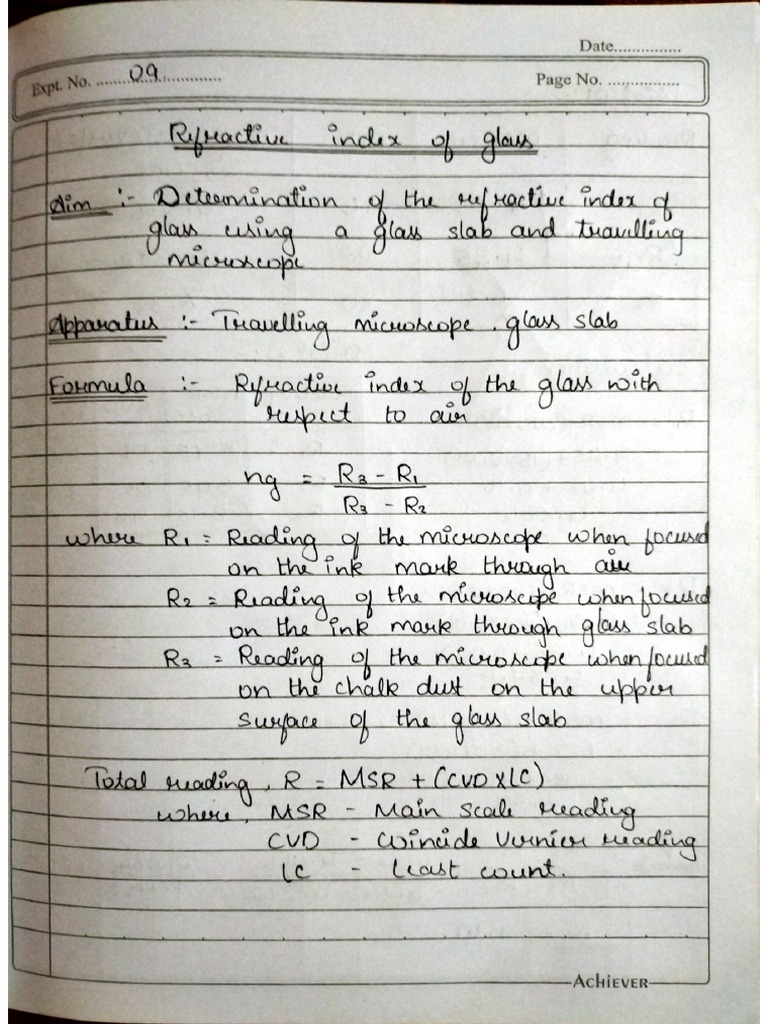 Date...............
Expt. No. ......09................
Page No. ................
Refractive index of glass
Aim :- Determination of the refractive index of
glass using a glass slab and travelling
microscope
Apparatus :- Travelling microscope, glass slab
Formula :- Refractive index of the glass with
respect to air
ng = R3 - R1
R3 - R2
where R1 = Reading of the microscope when focused
on the ink mark through air
R2 = Reading of the microscope when focused
on the ink mark through glass slab
R3 = Reading of the microscope when focused
on the chalk dust on the upper
surface of the glass slab
Total reading, R = MSR + (CVD x LC)
where, MSR - Main scale reading
CVD - Coincide Vernier reading
LC - Least count.
ACHIEVER